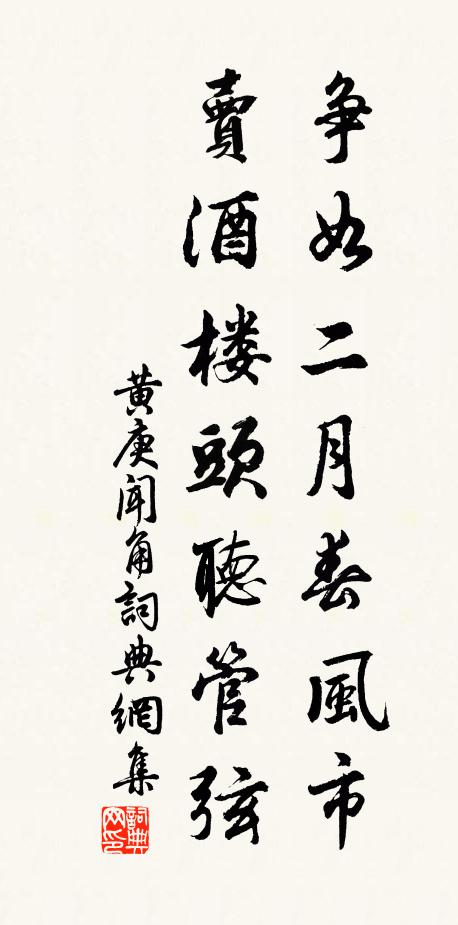 爭如二月春風市
賣酒楼頭聽管弦
黄庚聞角詞典網集
詞典网印